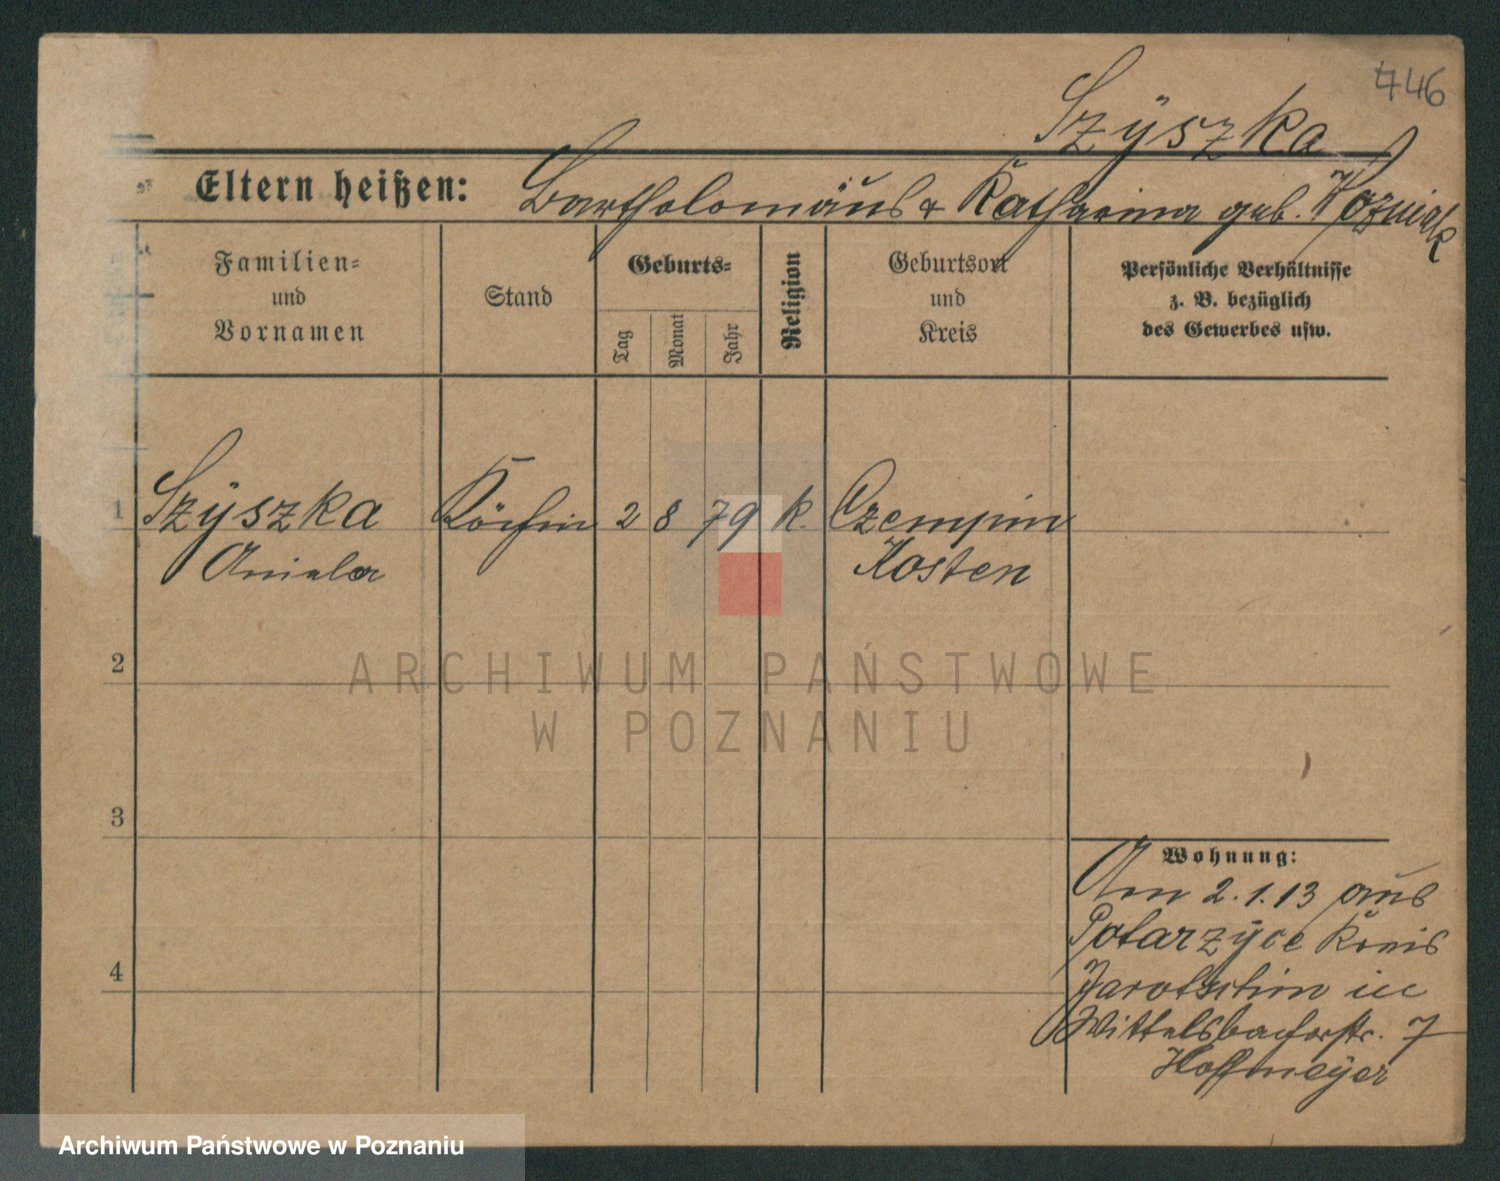 446
Szÿszka
Eltern heißen: Bartholomäus & Katharina geb. Wozniak
Familien-
und
Vornamen
Stand
Geburts-
Tag
Monat
Jahr
Religion
Geburtsort
und
Kreis
Persönliche Verhältnisse
z. B. bezüglich
des Gewerbes usw.
1 Szÿszka Köchin 2 8 79 k. Czempin
Aniela Kosten
2
3
4
Wohnung:
Am 2.1.13 aus
Potarzÿce Kreis
Jarotschin in
Wittelsbacherstr. 7
Hoffmeÿer
ARCHIWUM PAŃSTWOWE
W POZNANIU
Archiwum Państwowe w Poznaniu